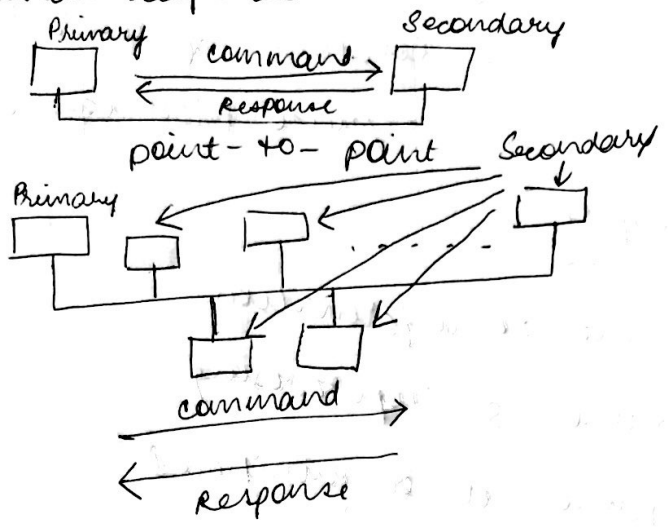 Primary
Secondary
command
Response
point-to-point
Secondary
Primary
command
Response